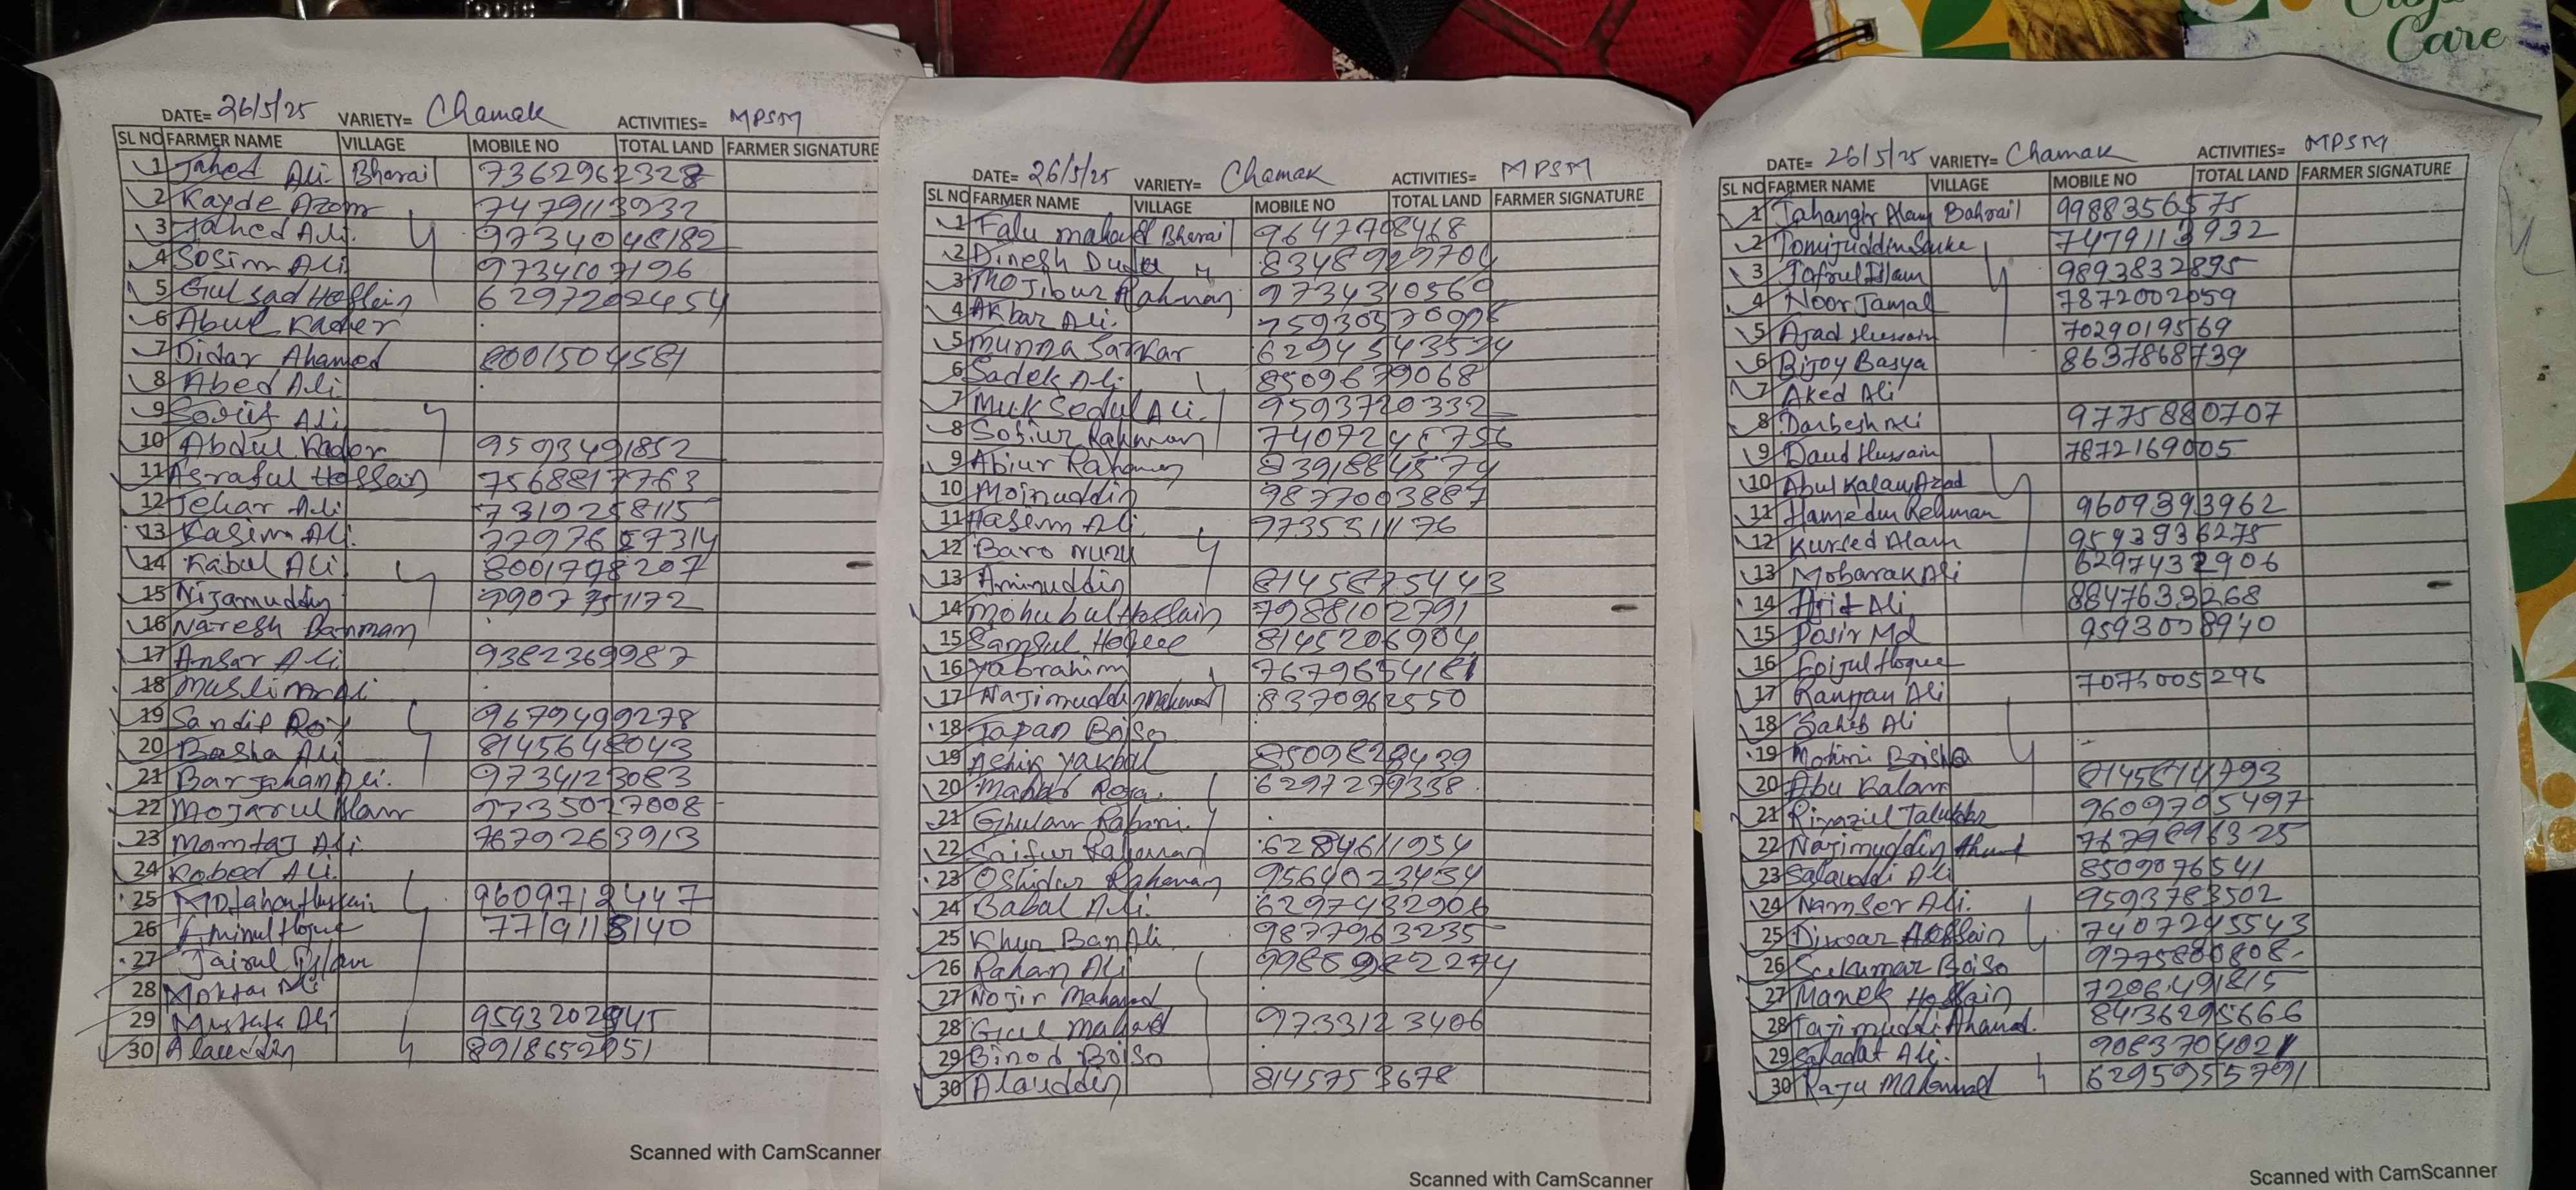 Crops
Care
DATE= 26/5/25 VARIETY= Chamak ACTIVITIES= MPSM
SL NO FARMER NAME VILLAGE MOBILE NO TOTAL LAND FARMER SIGNATURE
1 Jahed Ali Bharail 7362962328
2 Kayde Azom 7479113932
3 Jahed Ali 9734048182
4 Sosim Ali 9734607196
5 Gulsad Hossein 6297202454
6 Abul Kader
7 Didar Ahamed 8001504581
8 Abed Ali
9 Ali
10 Abdul Kader 9593491852
11 Asraful Hossain 7568817763
12 Jehar Ali 7319258115
13 Kasim Ali
14 Kabul Ali 8001798207
15 Nijamuddin
16 Naresh Barman
17 Ansar Ali 9382369987
18 Muslim Ali
19 Sandip Roy 9679499278
20 Basha Ali 8145648043
21 Barjahan Ali 9734123083
22 Mojarul Alam 9735027008
23 Mamtaj Ali 7679263913
24 Robed Ali
25 9609712447
26 Aminul Hoque 7719118140
27 Jairul Islam
28 Moktar Ali
29 Mustafa Ali 9593202945
30 Alauddin 8918652951
Scanned with CamScanner
DATE= 26/5/25 VARIETY= Chamak ACTIVITIES= MPSM
SL NO FARMER NAME VILLAGE MOBILE NO TOTAL LAND FARMER SIGNATURE
1 Falu Bharail 9647708468
2 Dinesh 8348929704
3 Mojibur Rahman 9734310560
4 Akbar Ali
5 Munna Sarkar 6294543574
6 Sadek Ali 8509679068
7 Muksedul Ali 9593720332
8 Sofiur Rahman
9 Abiur Rahaman 8391884574
10 Moinuddin 9877003887
11 Hasem Ali 9735311176
12 Baro Nuru
13 Aminuddin 8145875443
14 Mohubul Hossain 7988102791
15 Samsul Hoque 8145206904
16 Yabrahim
17 Najimuddin 8370962550
18 Tapan Boiso
19 Ashik Yakbal 8509828439
20 6297279338
21 Ghulam Rabani
22 Saifur Rahaman 6284611954
23 Oshidar Rahaman 9564023434
24 Babal Ali 6297432906
25 Khur Ban Ali 9877963235
26 Rahan Ali
27 Nojir Mahamad
28 Gul 9733123406
29 Binod Boiso
30 Alauddin 8145753678
Scanned with CamScanner
DATE= 26/5/25 VARIETY= Chamak ACTIVITIES= MPSM
SL NO FARMER NAME VILLAGE MOBILE NO TOTAL LAND FARMER SIGNATURE
1 Jahangir Alam Bahrail 9988356575
2 7479113932
3 9893832895
4 Noor Jamal 7872002059
5 Ajad Hussain 7029019569
6 Bijoy Basya 8637868739
7 Aked Ali
8 Darbesh Ali 9775880707
9 Daud Hussain 7872169005
10 Abul Kalam Azad
11 Hamedur Rehman 9609393962
12 Kursed Alam 9593936275
13 Mobarak Ali 6297432906
14 Ali 8847633268
15 Md
16 Foijul Hoque
17 Ramjan Ali 7073005296
18 Saheb Ali
19 Mohini
20 Abu Kalam 8145814793
21 Riyazul Talukdar 9609705497
22 Najimuddin 7679896325
23 Ali 8509076541
24 Namser Ali 9593783502
25 Hossein 7407245543
26 Sukumar Boiso 9775800808
27 Manek Hossain 7206491815
28 Tajimuddi Ahamad 8436295666
29 Sahadat Ali
30 Raju Mahammad 6295955791
Scanned with CamScanner